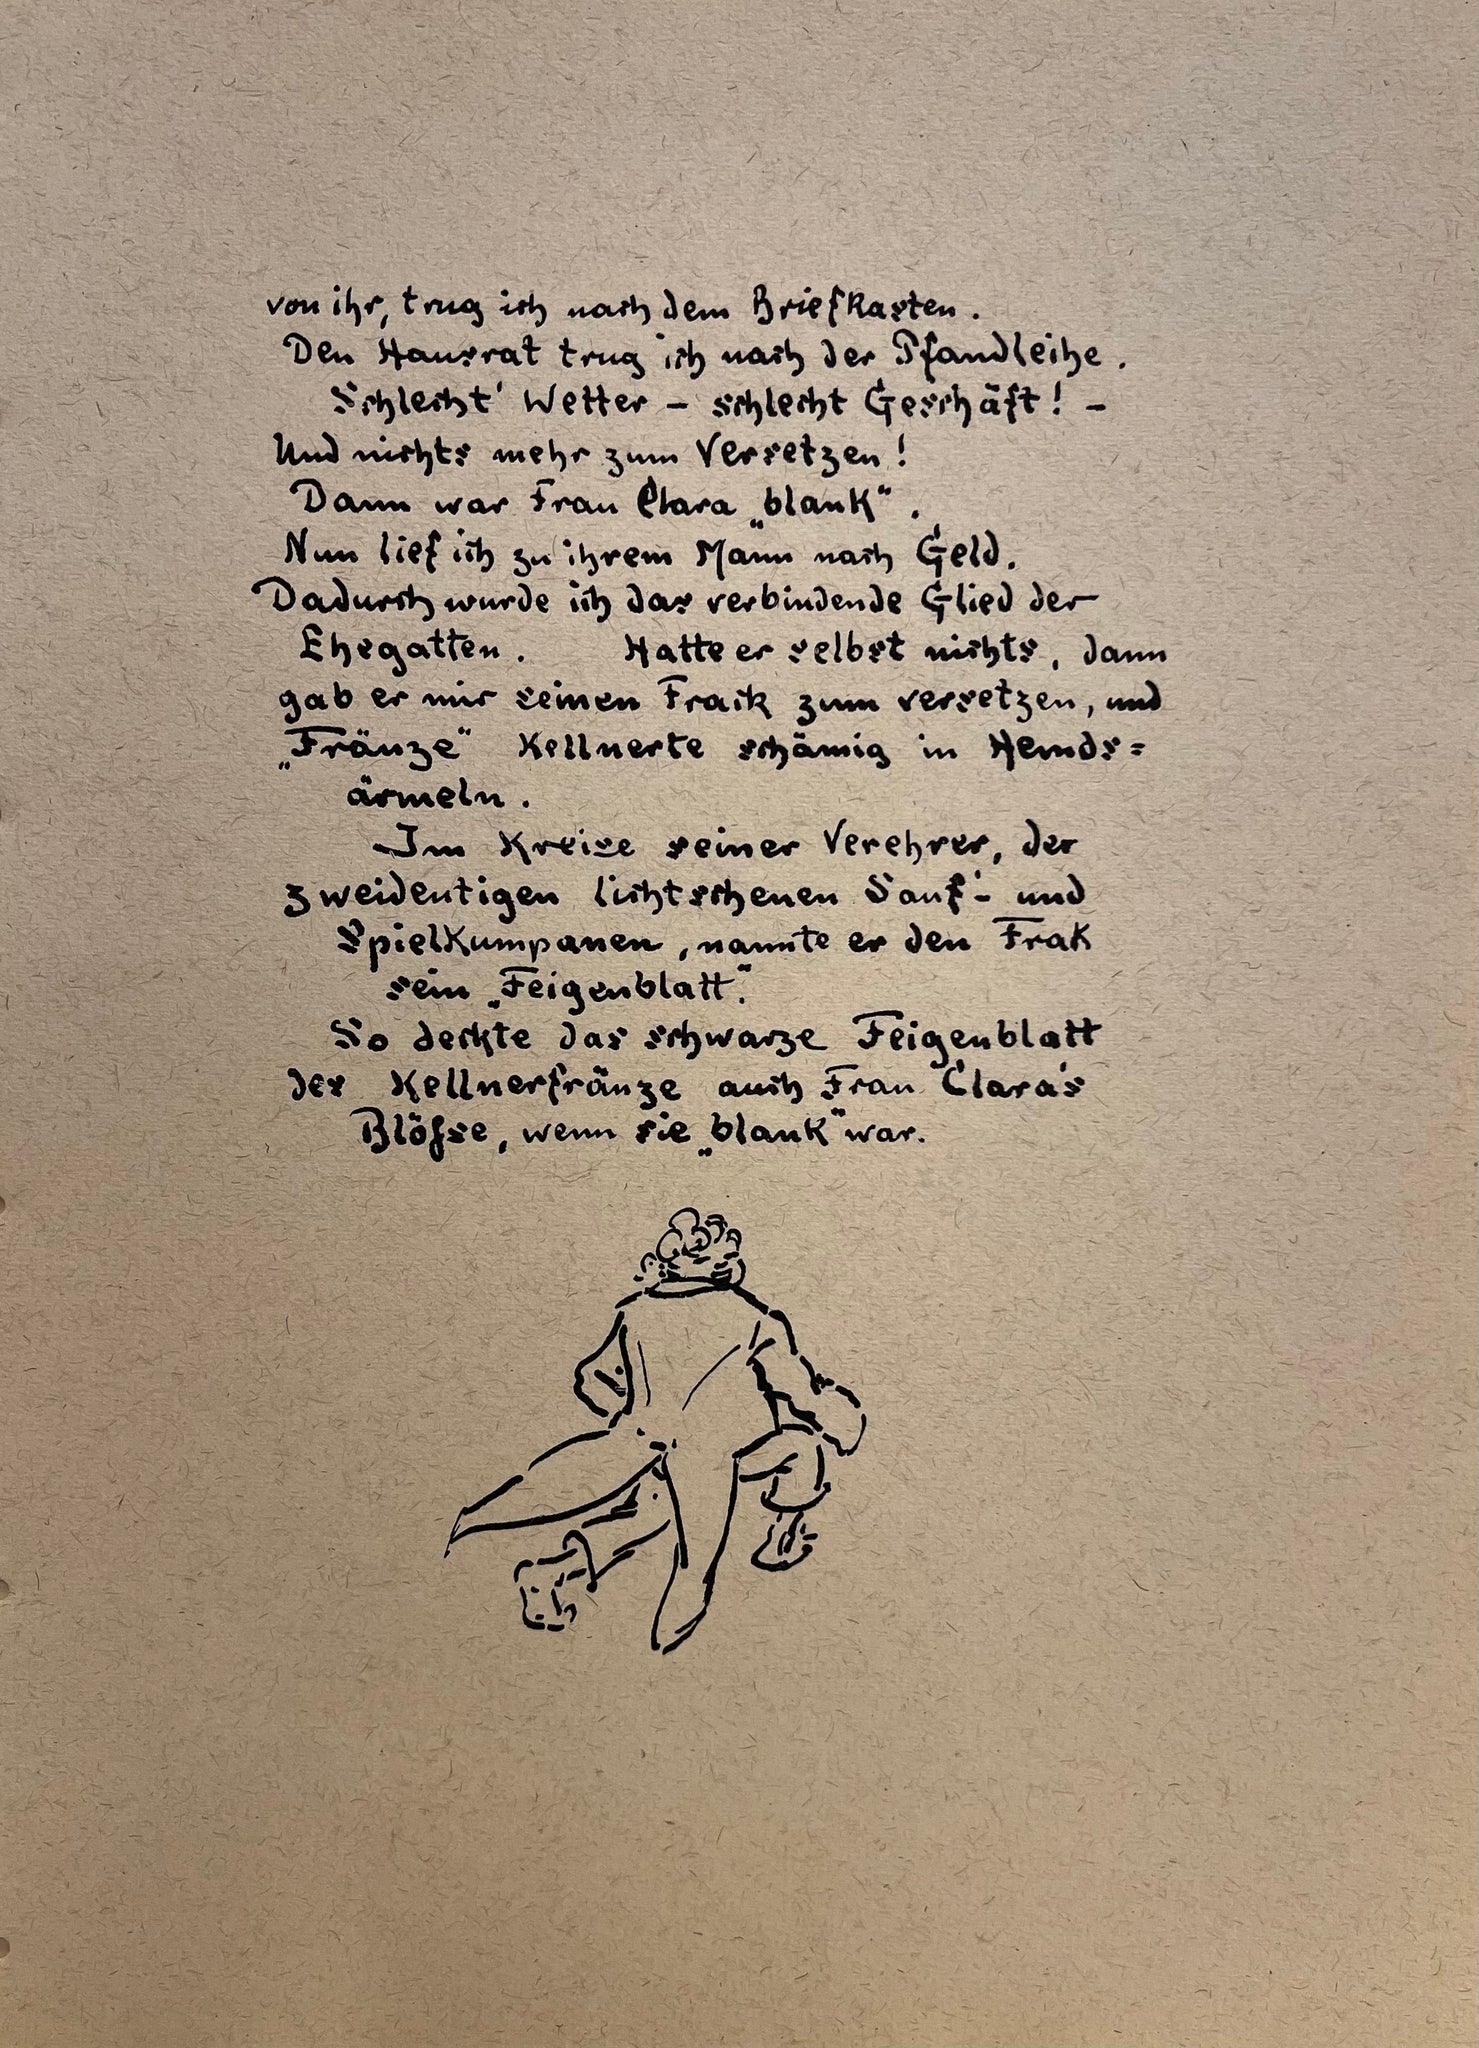 von ihr, trug ich nach dem Briefkasten.
Den Hausrat trug ich nach der Pfandleihe.
Schlecht' Wetter – schlecht Geschäft! –
Und nichts mehr zum Versetzen!
Dann war Frau Clara „blank“.
Nun lief ich zu ihrem Mann nach Geld.
Dadurch wurde ich das verbindende Glied der
Ehegatten. Hatte er selbst nichts, dann
gab er mir seinen Frack zum versetzen, und
„Fränze“ kellnerte schämig in Hemds=
ärmeln.
Im Kreise seiner Verehrer, der
zweideutigen lichtscheuen Sauf- und
Spielkumpanen, nannte er den Frak
sein „Feigenblatt“.
So deckte das schwarze Feigenblatt
des Kellnerfränze auch Frau Clara's
Blöſse, wenn sie „blank“ war.